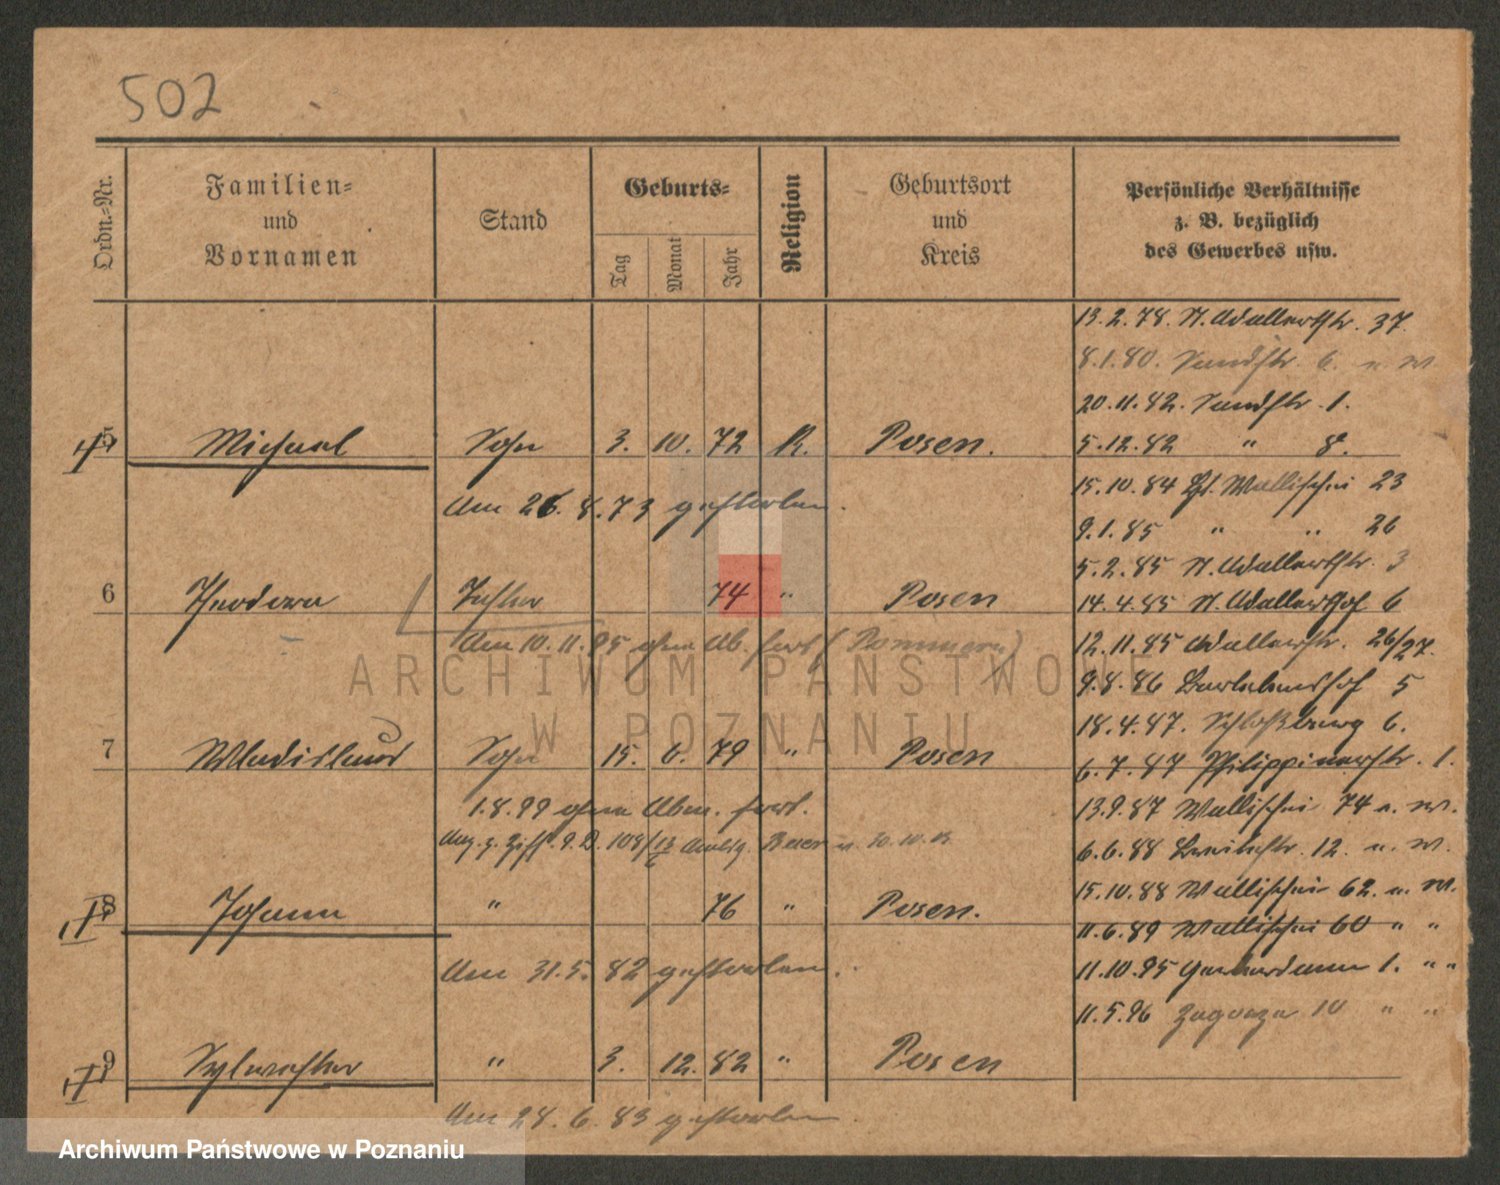 502
Ordn.-Nr.
Familien-
und
Vornamen
Stand
Geburts-
Tag
Monat
Jahr
Religion
Geburtsort
und
Kreis
Persönliche Verhältnisse
z. B. bezüglich
des Gewerbes usw.
13.2.78. N. Adalbertstr. 37.
8.1.80. Sandstr. 6. u. W
20.11.82. Sandstr. 1.
5 Michael Sohn 3. 10. 72 K. Posen.
5.12.82 " 8.
Am 26. 8. 73 gestorben.
15.10.84 Wallischei 23
9.1.85 " " 26
5.2.85 N. Adalbertstr. 3
6 Theodora Tochter 74 " Posen
14.4.85 N. Adalberthof 6
Am 10. 11. 95 ohne Ab. fort (Pommern)
12.11.85 Adalbertstr. 26/27.
9.8.86 Barlebenshof 5
18.4.87. Schloßberg 6.
7 Wladislaus Sohn 15. 6. 79 " Posen
6.7.87 Philippinerstr. 1.
1.8.99 ohne Abm. fort.
13.9.87 Wallischei 74 u. W.
6.6.88 Breitestr. 12. u. W.
8 Johann " 76 " Posen.
15.10.88 Wallischei 62. u. W.
11.6.89 Wallischei 60 " "
Am 31.5. 82 gestorben.
11.10.95 1. " "
11.5.96 Zagorze 10 " "
9 Sylvester " 3. 12. 82 " Posen
Am 28. 6. 83 gestorben.
ARCHIWUM PAŃSTWOWE
W POZNANIU
Archiwum Państwowe w Poznaniu